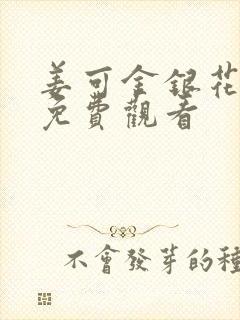 姜可金銀花
免費觀看
不會發芽的種